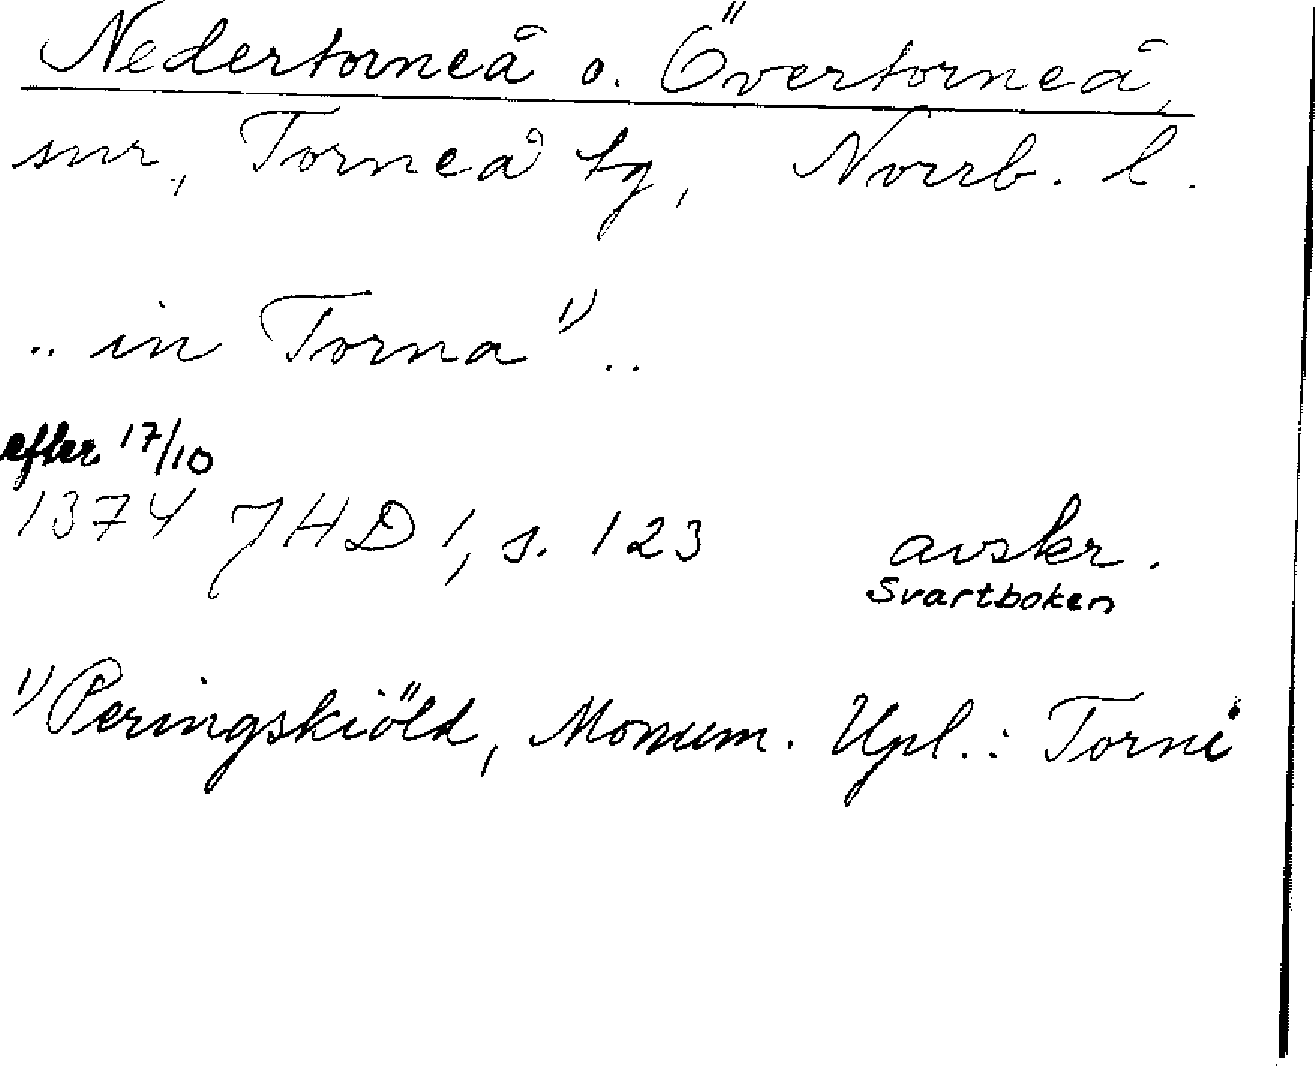 Nedertorneå o. Övertorneå,
snr, Torneå tg, Norrb. l.
.. in Torna 1) ..
efter 17/10
1374 JHD 1, s. 123 avskr.
Svartboken
1) Peringskiöld, Monum. Upl.: Torni